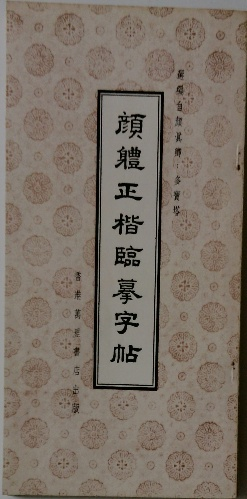 選輯自顏真卿・多寶塔
顏體正楷臨摹字帖
香港萬里書店出版